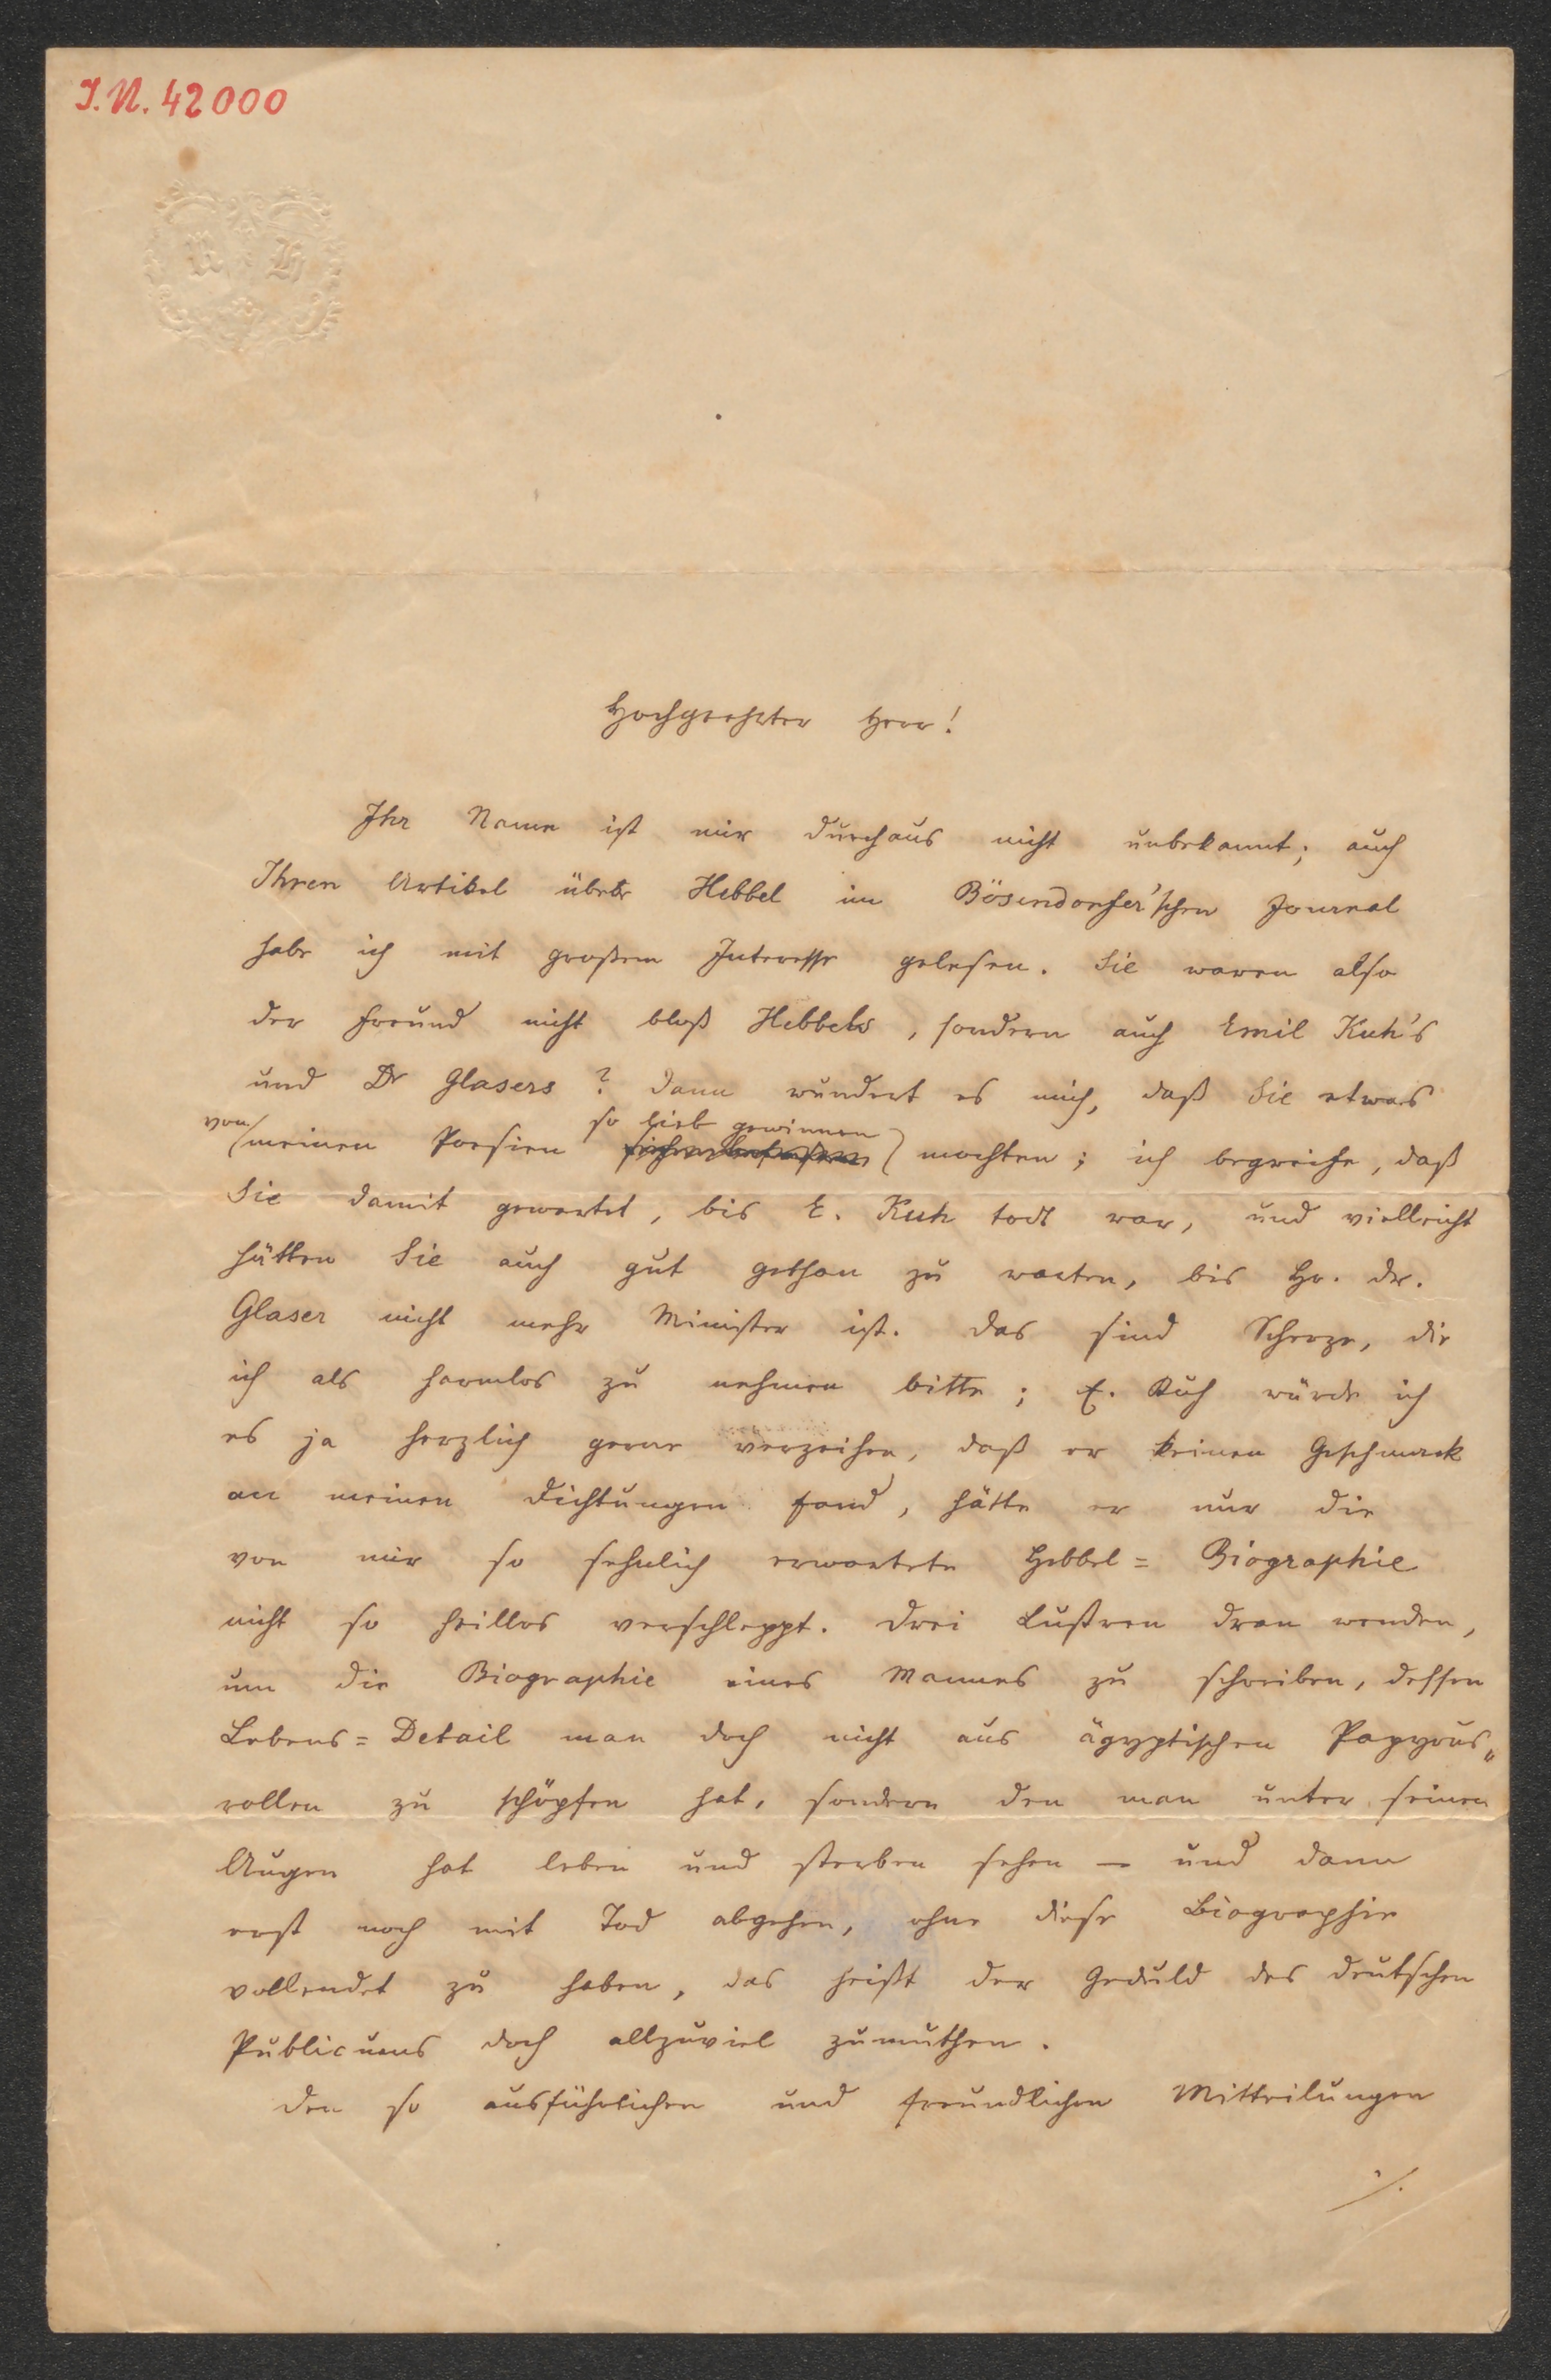 I.N. 42000
R H
Hochgeehrter Herr!
Ihr Name ist mir durchaus nicht unbekannt; auch
Ihren Artikel über Hebbel im Bösendorfer'schen Journal
habe ich mit großem Interesse gelesen. Sie waren also
der Freund nicht bloß Hebbels, sondern auch Emil Kuh's
und Dr Glasers? Dann wundert es mich, daß Sie etwas
von so lieb gewinnen
meinen Poesien mochten; ich begreife, daß
Sie damit gewartet, bis E. Kuh todt war, und vielleicht
hätten Sie auch gut gethan zu warten, bis Hr. Dr.
Glaser nicht mehr Minister ist. Das sind Scherze, die
ich als harmlos zu nehmen bitte; E. Kuh würde ich
es ja herzlich gerne verzeihen, daß er keinen Geschmack
an meinen Dichtungen fand, hätte er nur die
von mir so sehnlich erwartete Hebbel=Biographie
nicht so heillos verschleppt. Drei Lustren dran wenden,
um die Biographie eines Mannes zu schreiben, dessen
Lebens=Detail man doch nicht aus ägyptischen Papyrus„
rollen zu schöpfen hat, sondern den man unter seinen
Augen hat leben und sterben sehen — und dann
erst noch mit Tod abgehen, ohne diese Biographie
vollendet zu haben, das heißt der Geduld des deutschen
Publicums doch allzuviel zumuthen.
Den so ausführlichen und freundlichen Mitteilungen
./.